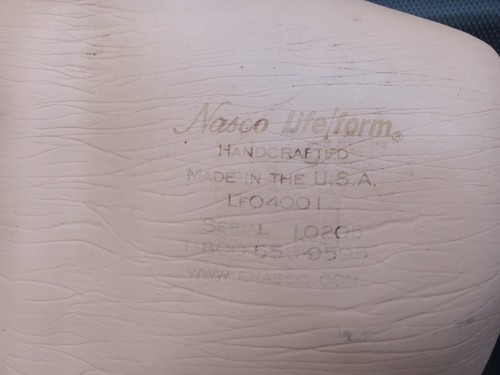 Nasco life/form®
HANDCRAFTED
MADE IN THE U.S.A.
LF04001
SERIAL 10208
1-800-558-9595
WWW.ENASCO.COM